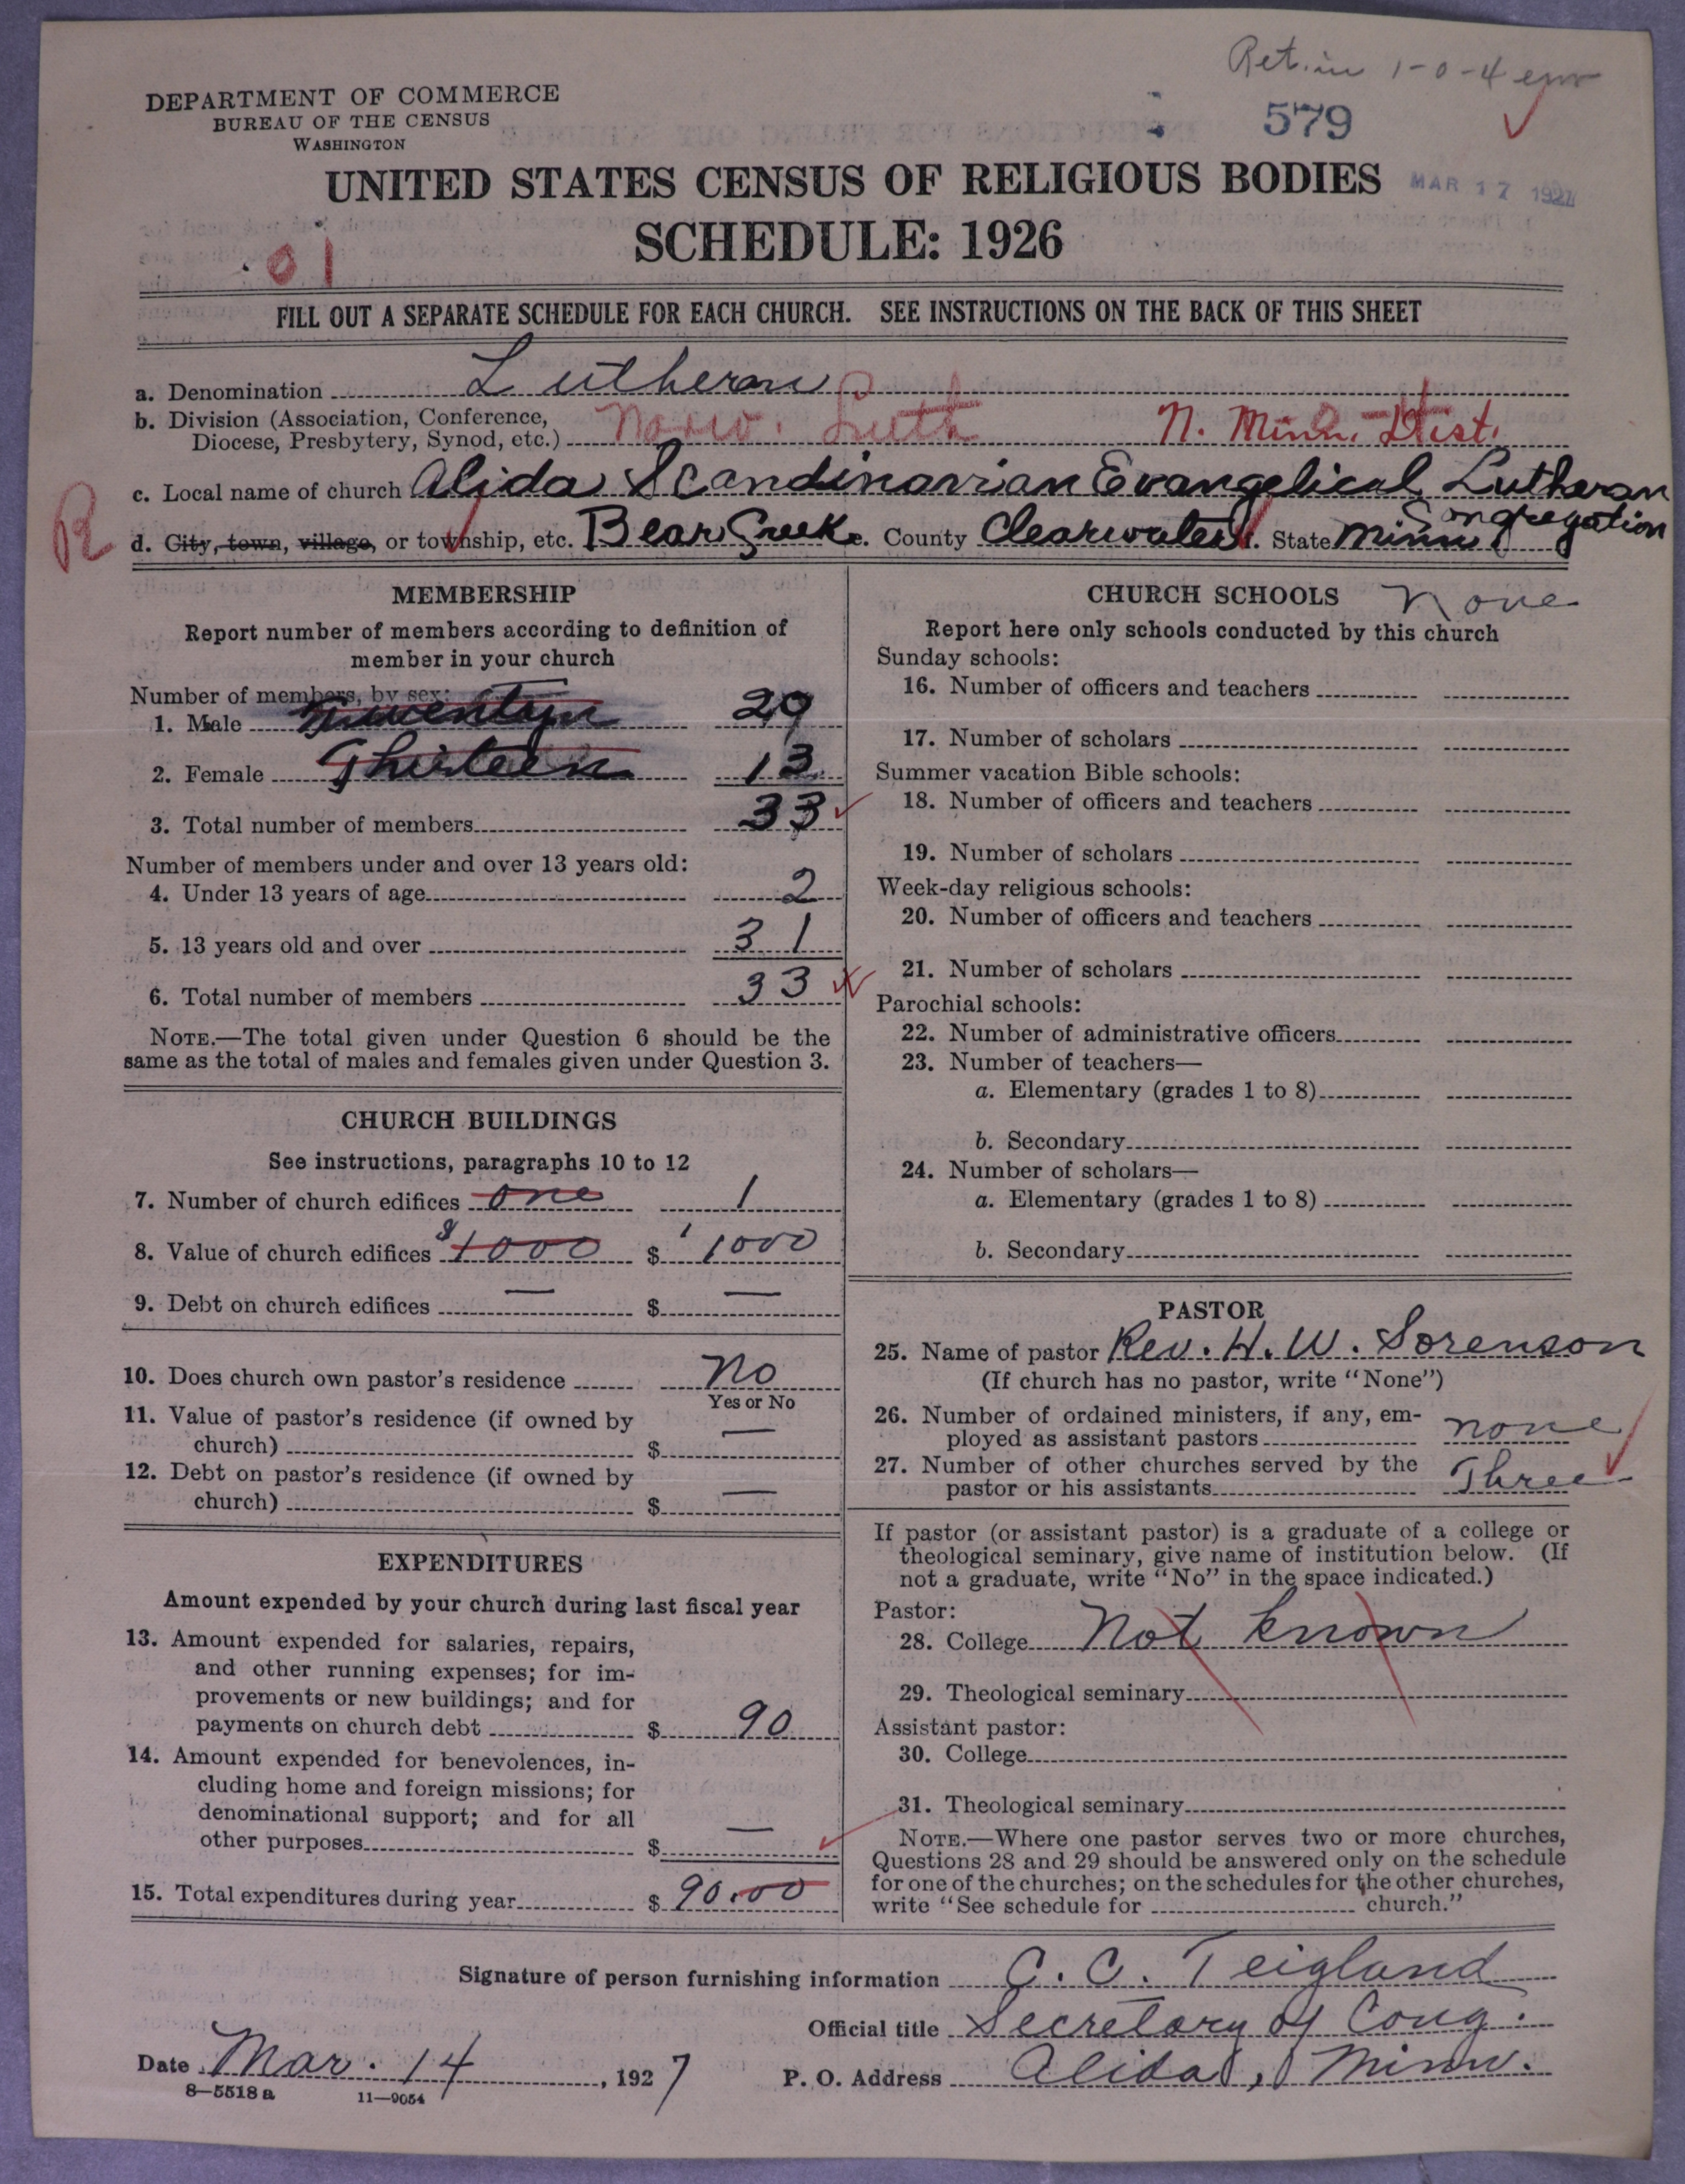 Ret. in 1-0-4
DEPARTMENT OF COMMERCE
BUREAU OF THE CENSUS
WASHINGTON
579
UNITED STATES CENSUS OF RELIGIOUS BODIES
MAR 17 1927
SCHEDULE: 1926
01
FILL OUT A SEPARATE SCHEDULE FOR EACH CHURCH. SEE INSTRUCTIONS ON THE BACK OF THIS SHEET
a. Denomination Lutheran
b. Division (Association, Conference,
Diocese, Presbytery, Synod, etc.) Norw. Luth N. Minn. Dist.
c. Local name of church Alida Scandinavian Evangelical Lutheran
Congregation
R
d. City, town, village, or township, etc. Bear Creek. County Clearwater. State Minn
MEMBERSHIP
Report number of members according to definition of
member in your church
Number of members, by sex:
1. Male 20
2. Female Thirteen 13
3. Total number of members 33
Number of members under and over 13 years old:
4. Under 13 years of age 2
5. 13 years old and over 31
6. Total number of members 33
NOTE.—The total given under Question 6 should be the
same as the total of males and females given under Question 3.
CHURCH BUILDINGS
See instructions, paragraphs 10 to 12
7. Number of church edifices one 1
8. Value of church edifices $1000 $ 1000
9. Debt on church edifices — $ —
10. Does church own pastor's residence No
Yes or No
11. Value of pastor's residence (if owned by
church) $ —
12. Debt on pastor's residence (if owned by
church) $ —
EXPENDITURES
Amount expended by your church during last fiscal year
13. Amount expended for salaries, repairs,
and other running expenses; for im-
provements or new buildings; and for
payments on church debt $ 90
14. Amount expended for benevolences, in-
cluding home and foreign missions; for
denominational support; and for all
other purposes $ —
15. Total expenditures during year $ 90.00
CHURCH SCHOOLS None
Report here only schools conducted by this church
Sunday schools:
16. Number of officers and teachers
17. Number of scholars
Summer vacation Bible schools:
18. Number of officers and teachers
19. Number of scholars
Week-day religious schools:
20. Number of officers and teachers
21. Number of scholars
Parochial schools:
22. Number of administrative officers
23. Number of teachers—
a. Elementary (grades 1 to 8)
b. Secondary
24. Number of scholars—
a. Elementary (grades 1 to 8)
b. Secondary
PASTOR
25. Name of pastor Rev. H. W. Sorenson
(If church has no pastor, write "None")
26. Number of ordained ministers, if any, em-
ployed as assistant pastors none
27. Number of other churches served by the
pastor or his assistants Three
If pastor (or assistant pastor) is a graduate of a college or
theological seminary, give name of institution below. (If
not a graduate, write "No" in the space indicated.)
Pastor:
28. College Not known
29. Theological seminary
Assistant pastor:
30. College
31. Theological seminary
NOTE.—Where one pastor serves two or more churches,
Questions 28 and 29 should be answered only on the schedule
for one of the churches; on the schedules for the other churches,
write "See schedule for church."
Signature of person furnishing information C. C. Teigland
Official title Secretary of Cong.
Date Mar. 14, 1927
P. O. Address Alida, Minn.
8—5518 a 11—9054